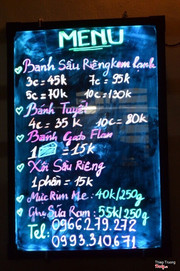 MENU
Bánh Sầu Riêng kem lạnh
3c = 45k 7c = 95k
5c = 70k 10c = 130k
Bánh Tuyết
4c = 35k 10c = 80k
Bánh Gato Flan
1 = 15k
Xôi Sầu Riêng
1 phần = 15k
Mực Rim Me: 40k/250g
Ghẹ Sữa Ram: 55k/250g
Tel: 0966.279.272
0993.340.671